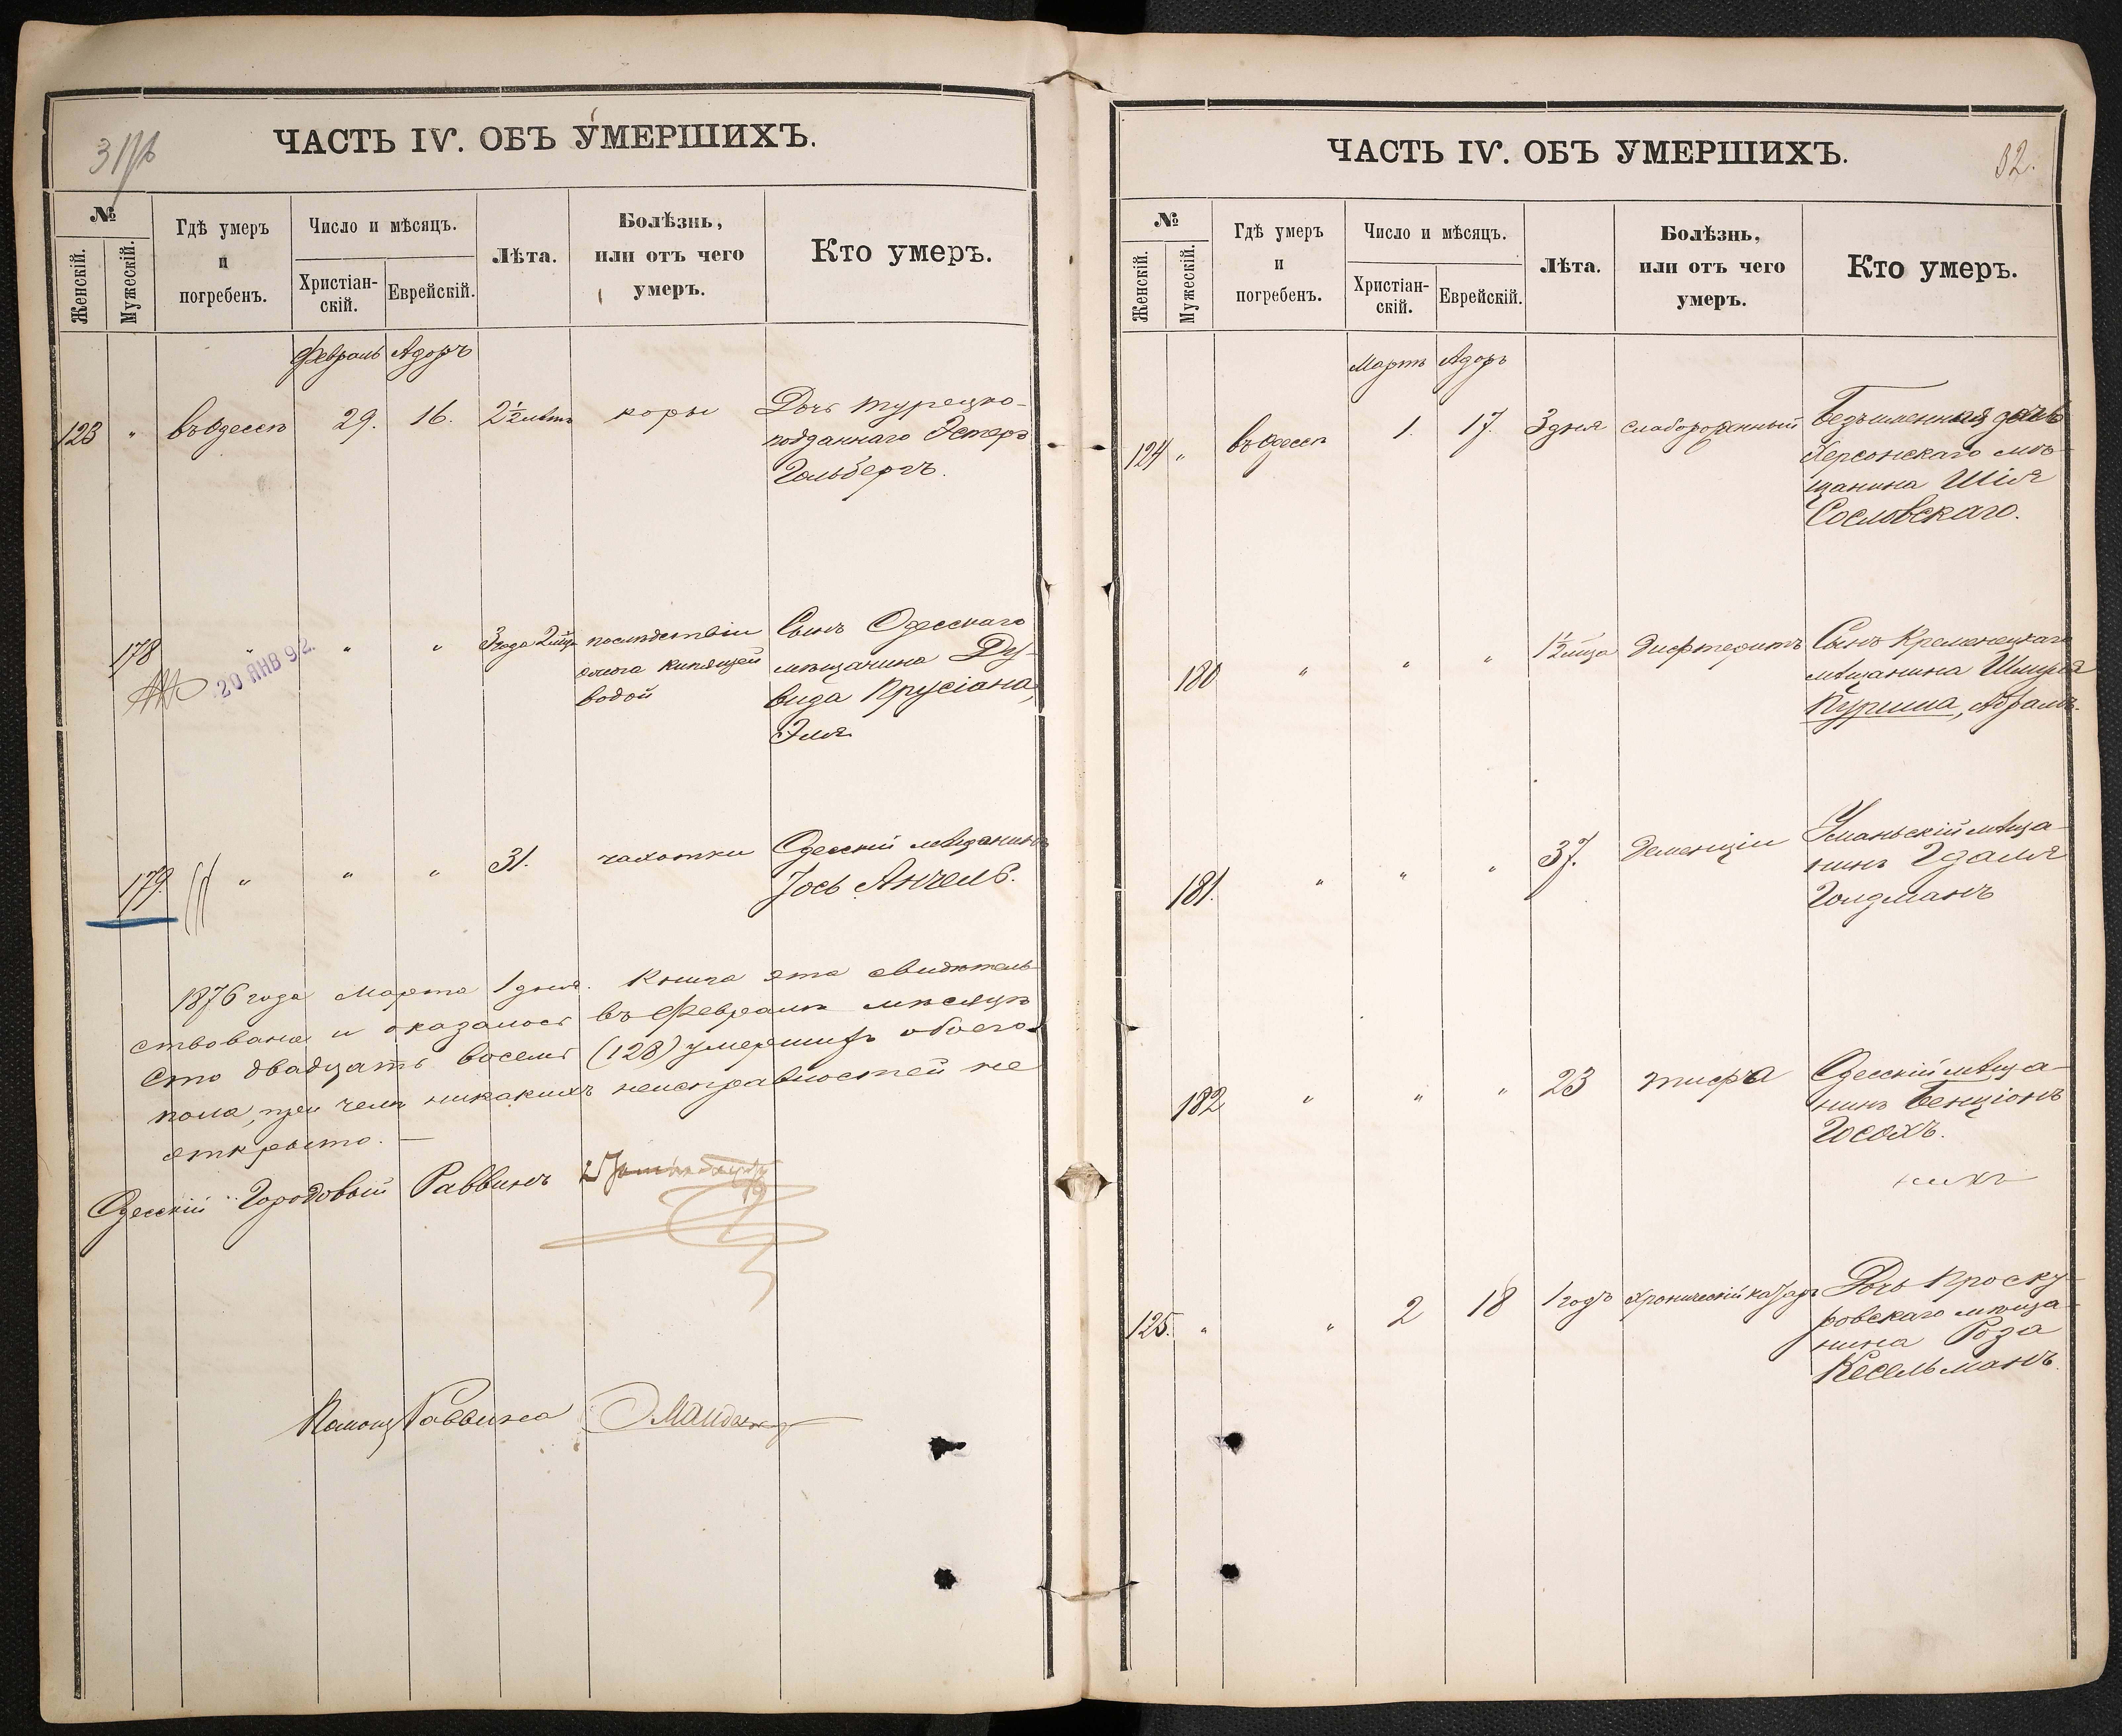 ЧАСТЬ IV. ОБЪ УМЕРШИХЪ.
№
Женскій.
Мужескій.
Гдѣ умеръ
и
погребенъ.
Число и мѣсяцъ.
Христіан-
скій.
Еврейскій.
Лѣта.
Болѣзнь,
или отъ чего
умеръ.
Кто умеръ.
Февраль Адоръ
123 " въ Одессѣ 29. 16. 2½ лѣтъ коры Дочь турецко-
подданнаго Эстеръ
Гольбергъ.
178 " " " 3 года 2 мѣс послѣдствіи Сынъ Одесскаго
ожога кипящей мѣщанина Ду-
водой вида Крусіана,
Эля
20 ЯНВ 92.
179. " " " 31. чахотки Одесскій мѣщанинъ
Іось Анчель.
1876 года Марта 1 дня. Книга эта свидѣтель-
ствована и оказалось въ Февралѣ мѣсяцѣ
сто двадцать восемь (128) умершихъ обоего
пола, при чемъ никакихъ неисправностей не
открыто. —
Одесскій Городовый Раввинъ
Помощ Раввина
ЧАСТЬ IV. ОБЪ УМЕРШИХЪ.
32.
№
Женскій.
Мужескій.
Гдѣ умеръ
и
погребенъ.
Число и мѣсяцъ.
Христіан-
скій.
Еврейскій.
Лѣта.
Болѣзнь,
или отъ чего
умеръ.
Кто умеръ.
Мартъ Адоръ
124 " въ Одессѣ 1. 17. 3 дня слаборожденный Безъименная дочь
Херсонскаго мѣ-
щанина Шія
Сословскаго.
180 " " " 1½ мѣца Дифтеритъ Сынъ Кременецкаго
мѣщанина Шмуля
Куриша, Абрамъ.
181. " " " 37. Деменціи Уманьскій мѣща-
нинъ Гдаля
Голдманъ
182 " " " 23 тифа Одесскій мѣща-
нинъ Бенціонъ
Госохъ.
125. " " 2 18 1 годъ Хроническій катаръ Дочь Проску-
ровскаго мѣща-
нина Роза
Кесельманъ.